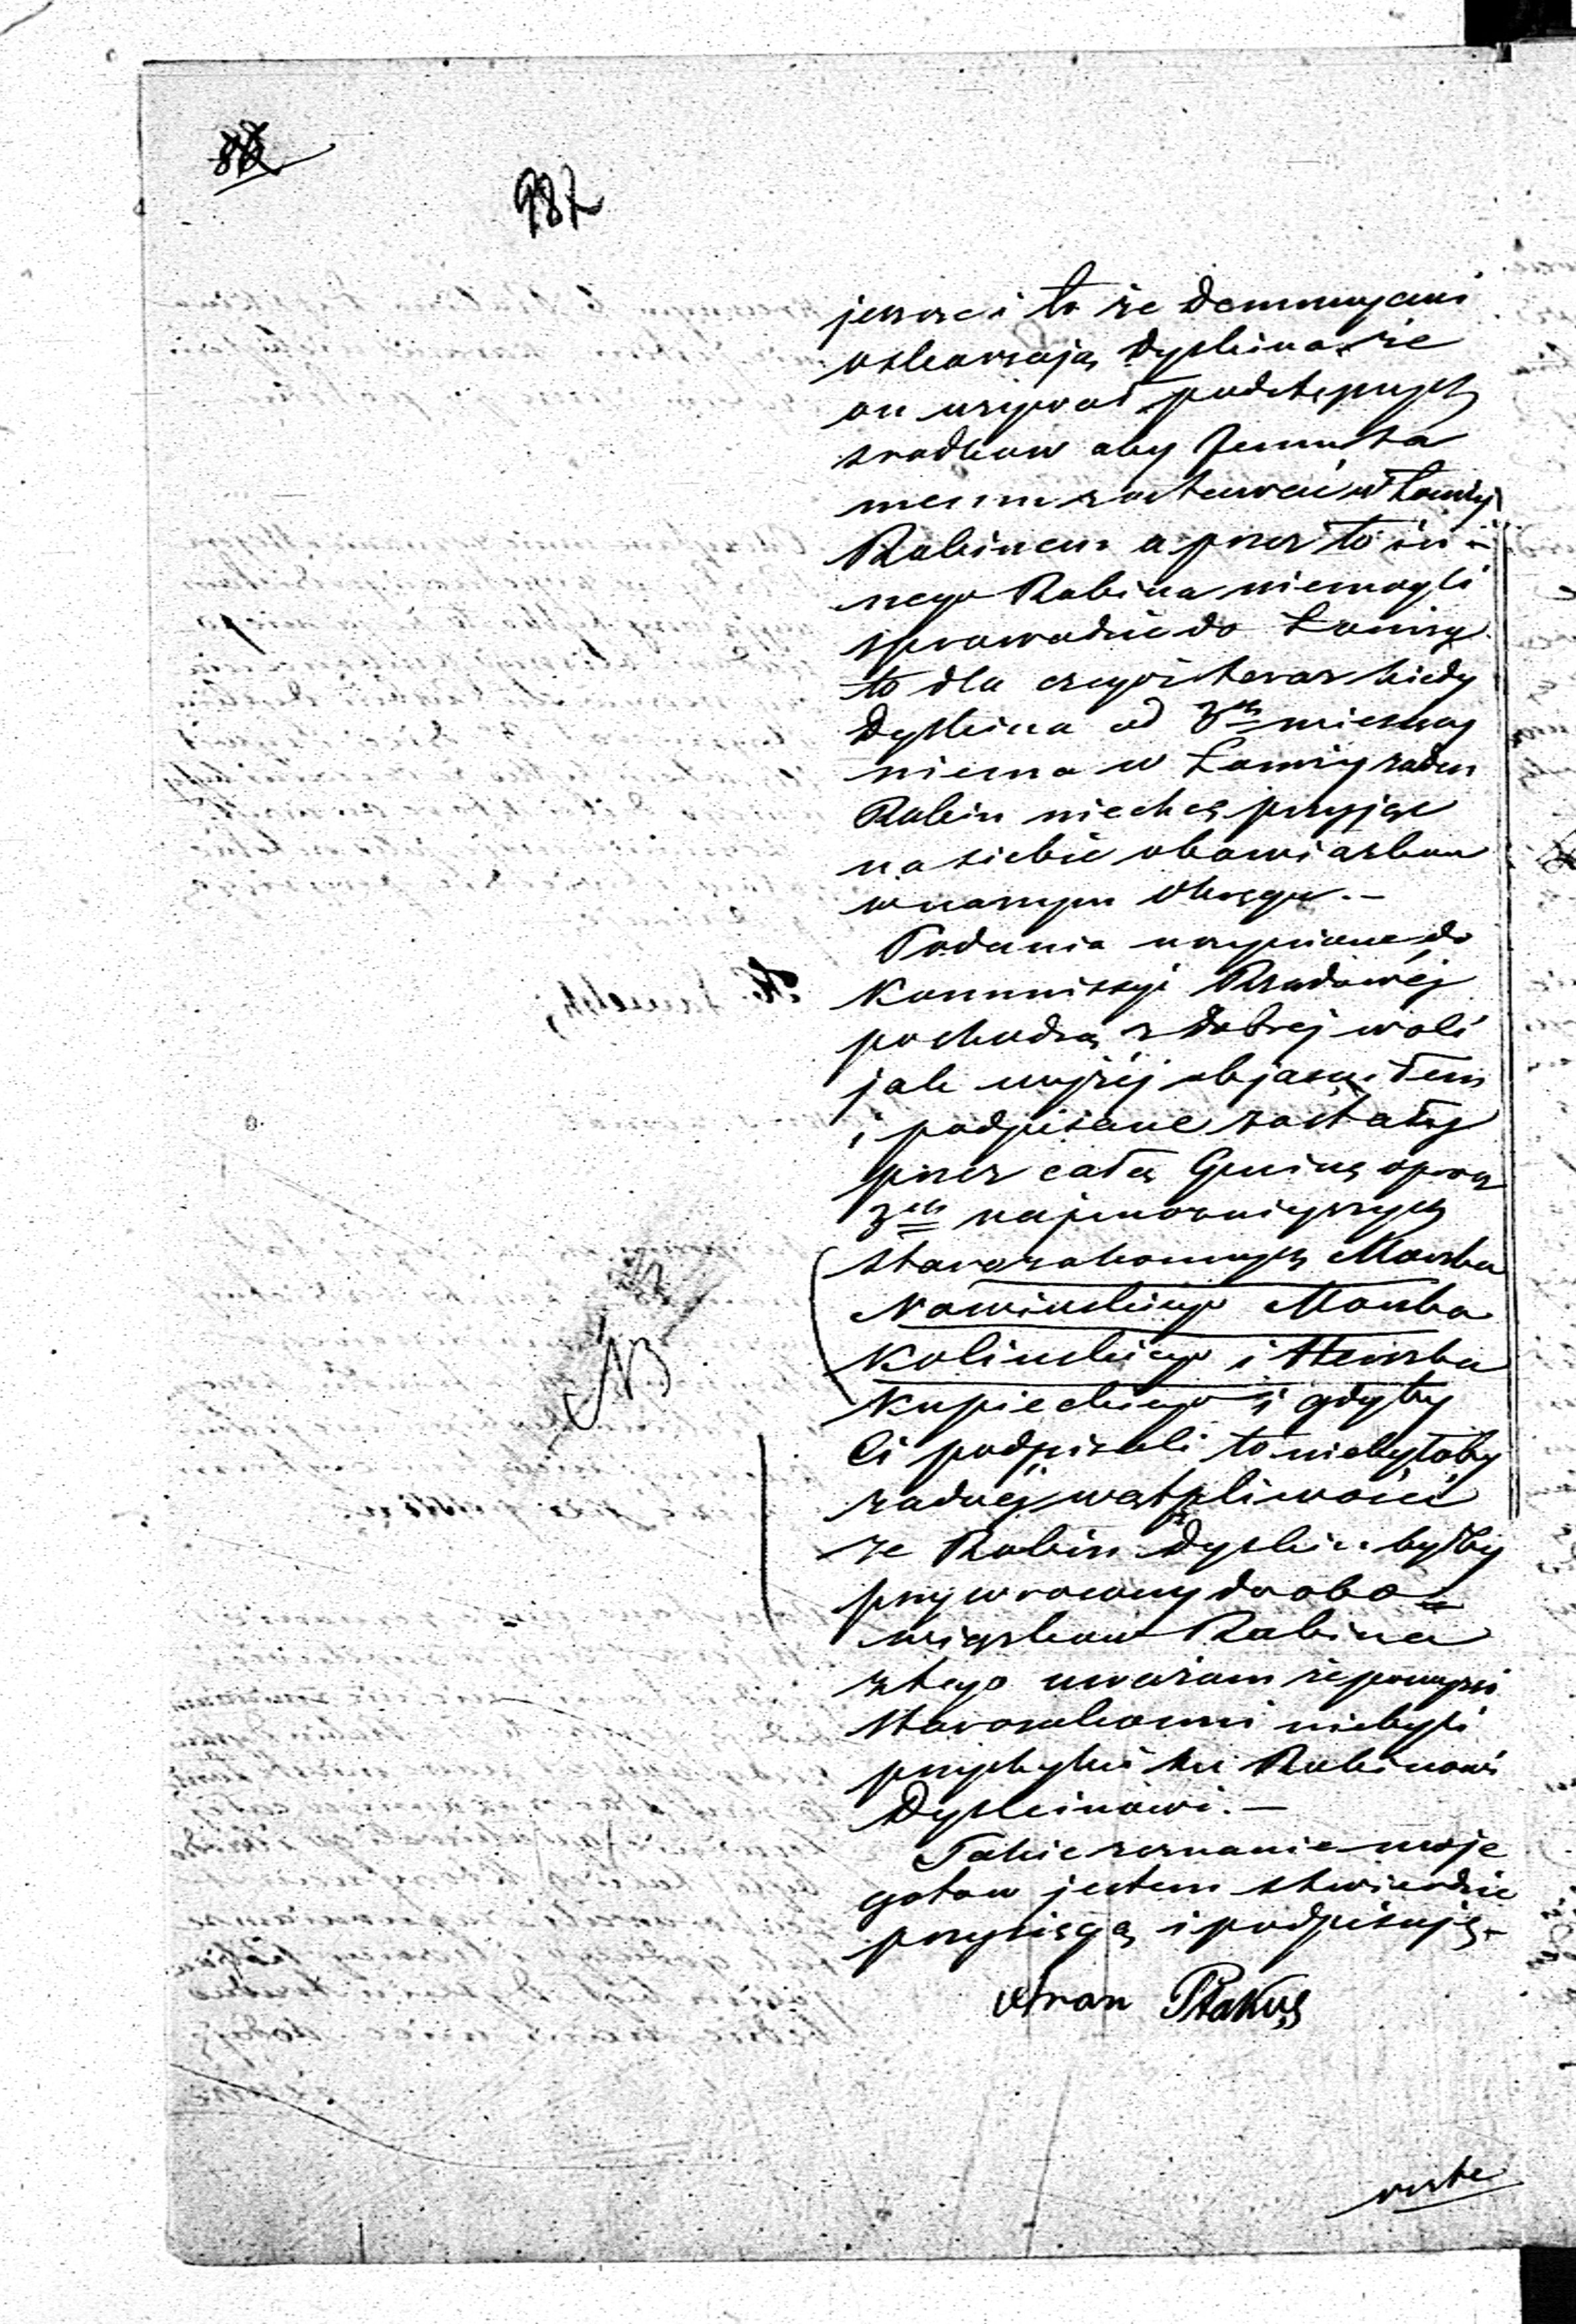 987
jeszcze i to że Denuncyanci
oskarżają Dyskina że
on używał podstępnych
środkow aby Jemu sa
memu zostawać w Łomży
Rabinem a przez to in-
nego Rabina niemogli
sprowadzić do Łomży
to dla czegoż teraz kiedy
Dyskina od 3ch miesięcy
niema w Łomży żaden
Rabin niechcę przyjąć
na siebie obowiązkow
w naszym Okręgu.-
Podania uczynione do
Kommissyi Rządowéj
pochodzą z dobrej woli
jak wyżéj objaśniłem
i podpisane zostały
przez całą Gminę oprócz
3ch najmożniejszych
starozakonnych Moszka
Nowinskiego Moszka
Kolinskiego i Herszka
Kupieckiego i gdyby
Ci podpisali to niebyłoby
żadnéj wątpliwości
że Rabin Dyskin byłby
przywrocony do obo-
wiązkow Rabina
z tego uważam że powyżsi
starozakonni niebyli
przychylni ku Rabinowi
Dyskinowi.-
Takie zeznanie moje
gotow jestem stwierdzić
przysięgą i podpisuję.-
Aron Ptakus
NB
verte